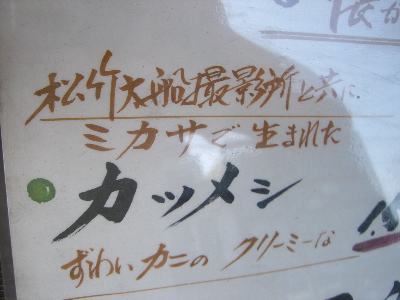 松竹大船撮影所と共に
ミカサで生まれた
カツメシ
ずわいカニの クリーミーな